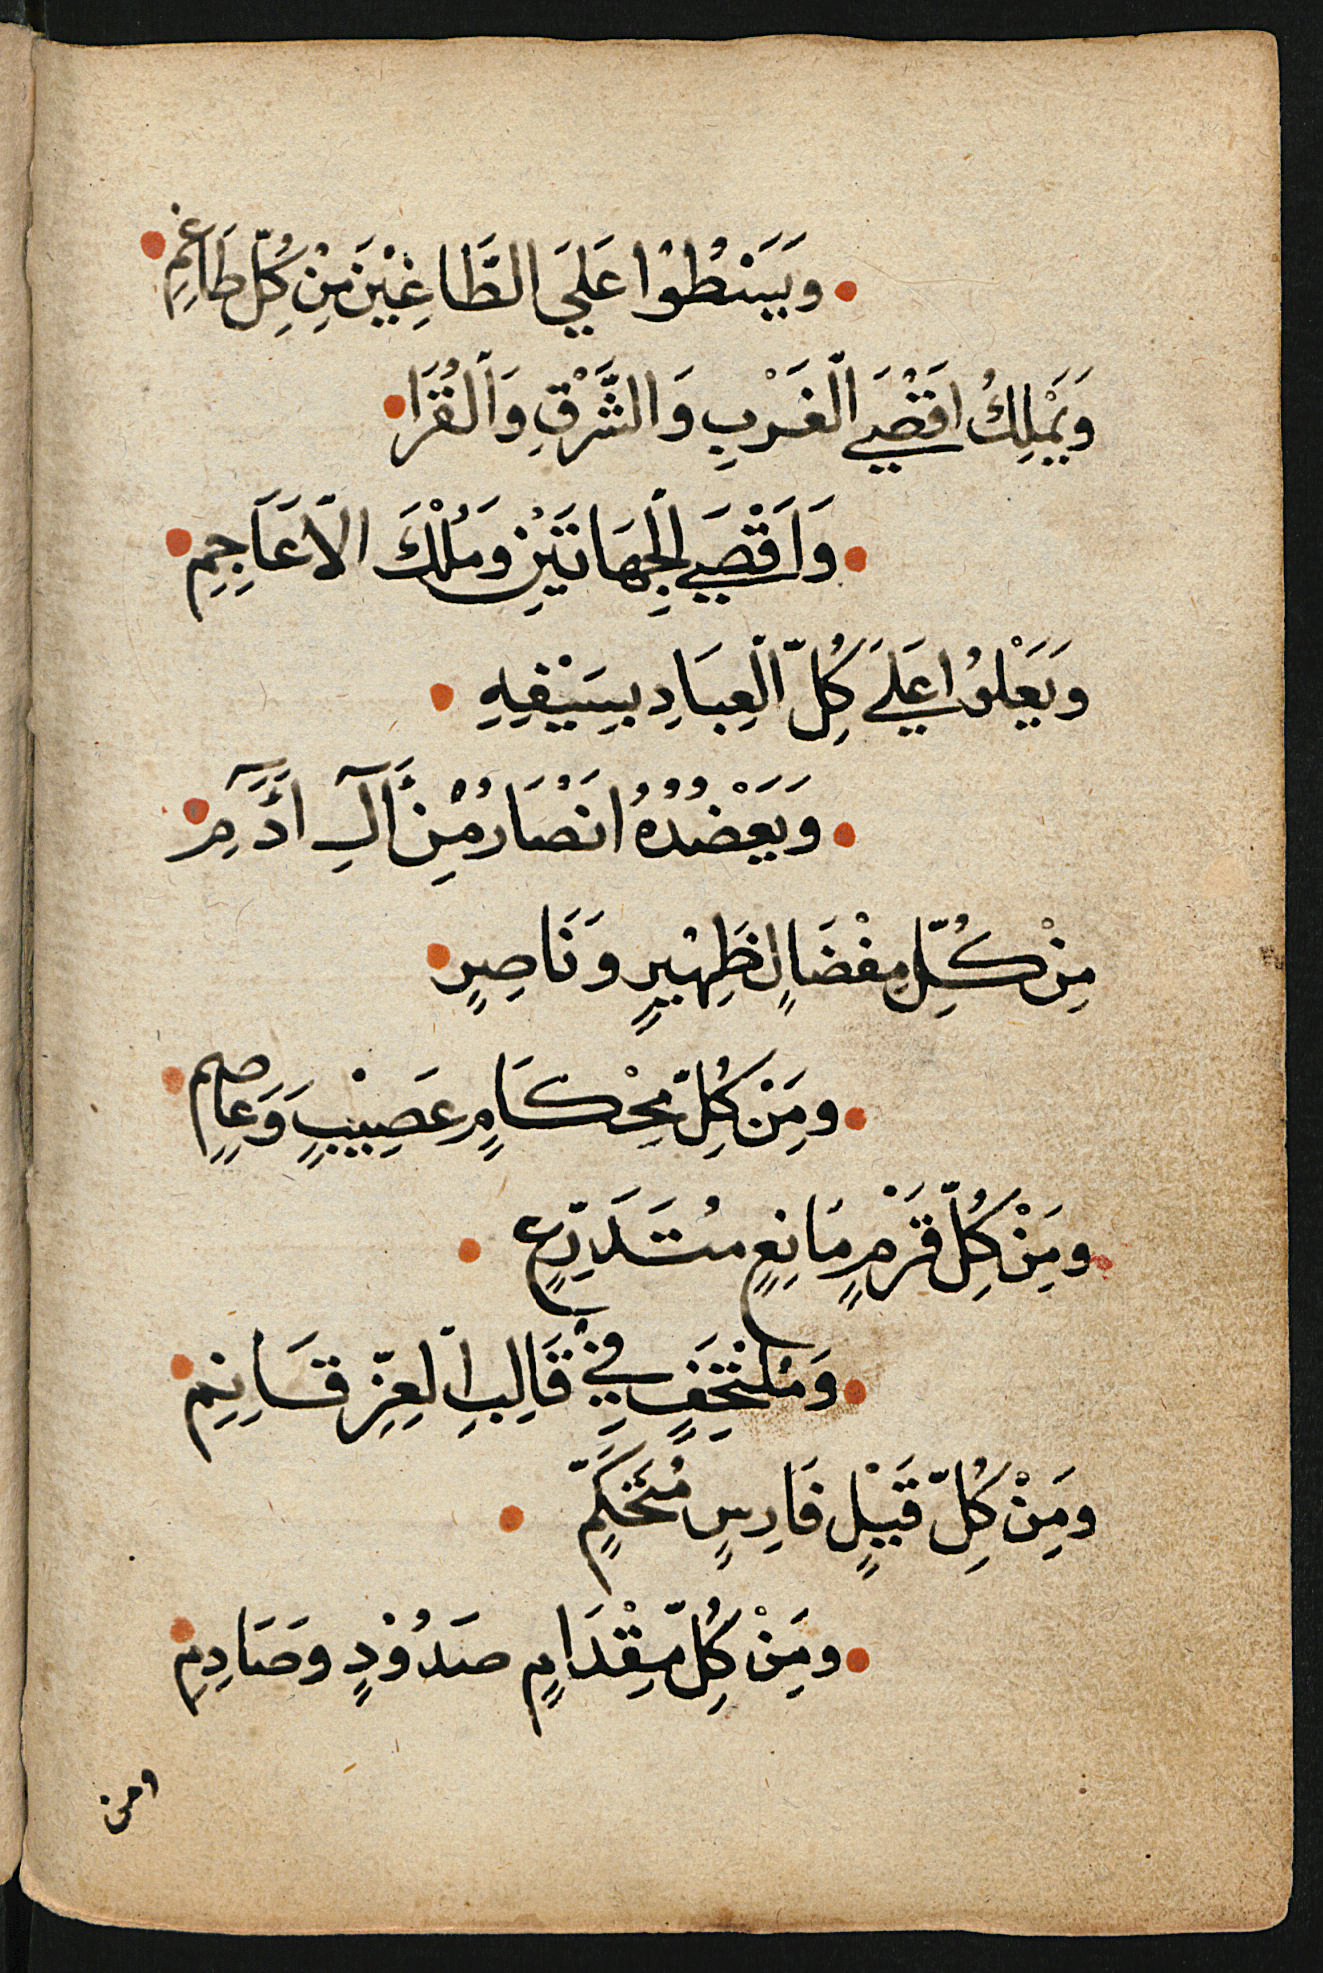 وَيَسْطُوْا عَلَي الطَّاغِيْنَ مِنْ كُلِّ طَاغِمِ
وَيَمْلِكُ اقَصْيَ الْغَرْبِ وَالشَّرْقِ وَالْقُرَا
وَاَقْصَي الْجِهَاتَيْنِ وَمُلْكَ الْاَعَاجِمِ
وَيَعْلُوْا عَلَي كُلِّ الْعِبَادِ بِسَيْفِهِ
وَيَعْضُدُهُ انْصَارُ مِّنْ اَلِ اَدَمِ
مِنْ كُلِّ مِفْضَالٍ ظَهِيْرٍ وَنَاصِرٍ
ومِنْ كُلِّ مِحْكَامٍ عَصِيْبٍ وَعَاصِمٍ
ومِنْ كُلِّ قَرْمٍ مَانِعٍ مُتَدَرِّعٍ
وَمُلْتَحِفٍ فِيْ قَالِبِ الْعِزِّ قَائِمِ
ومِنْ كُلِّ قَيْلٍ فَارِسٍ مُتَحَكِّمٍ
ومِنْ كُلِّ مِّقْدَامٍ صَدُوْدٍ وصَادِمِ
ومن